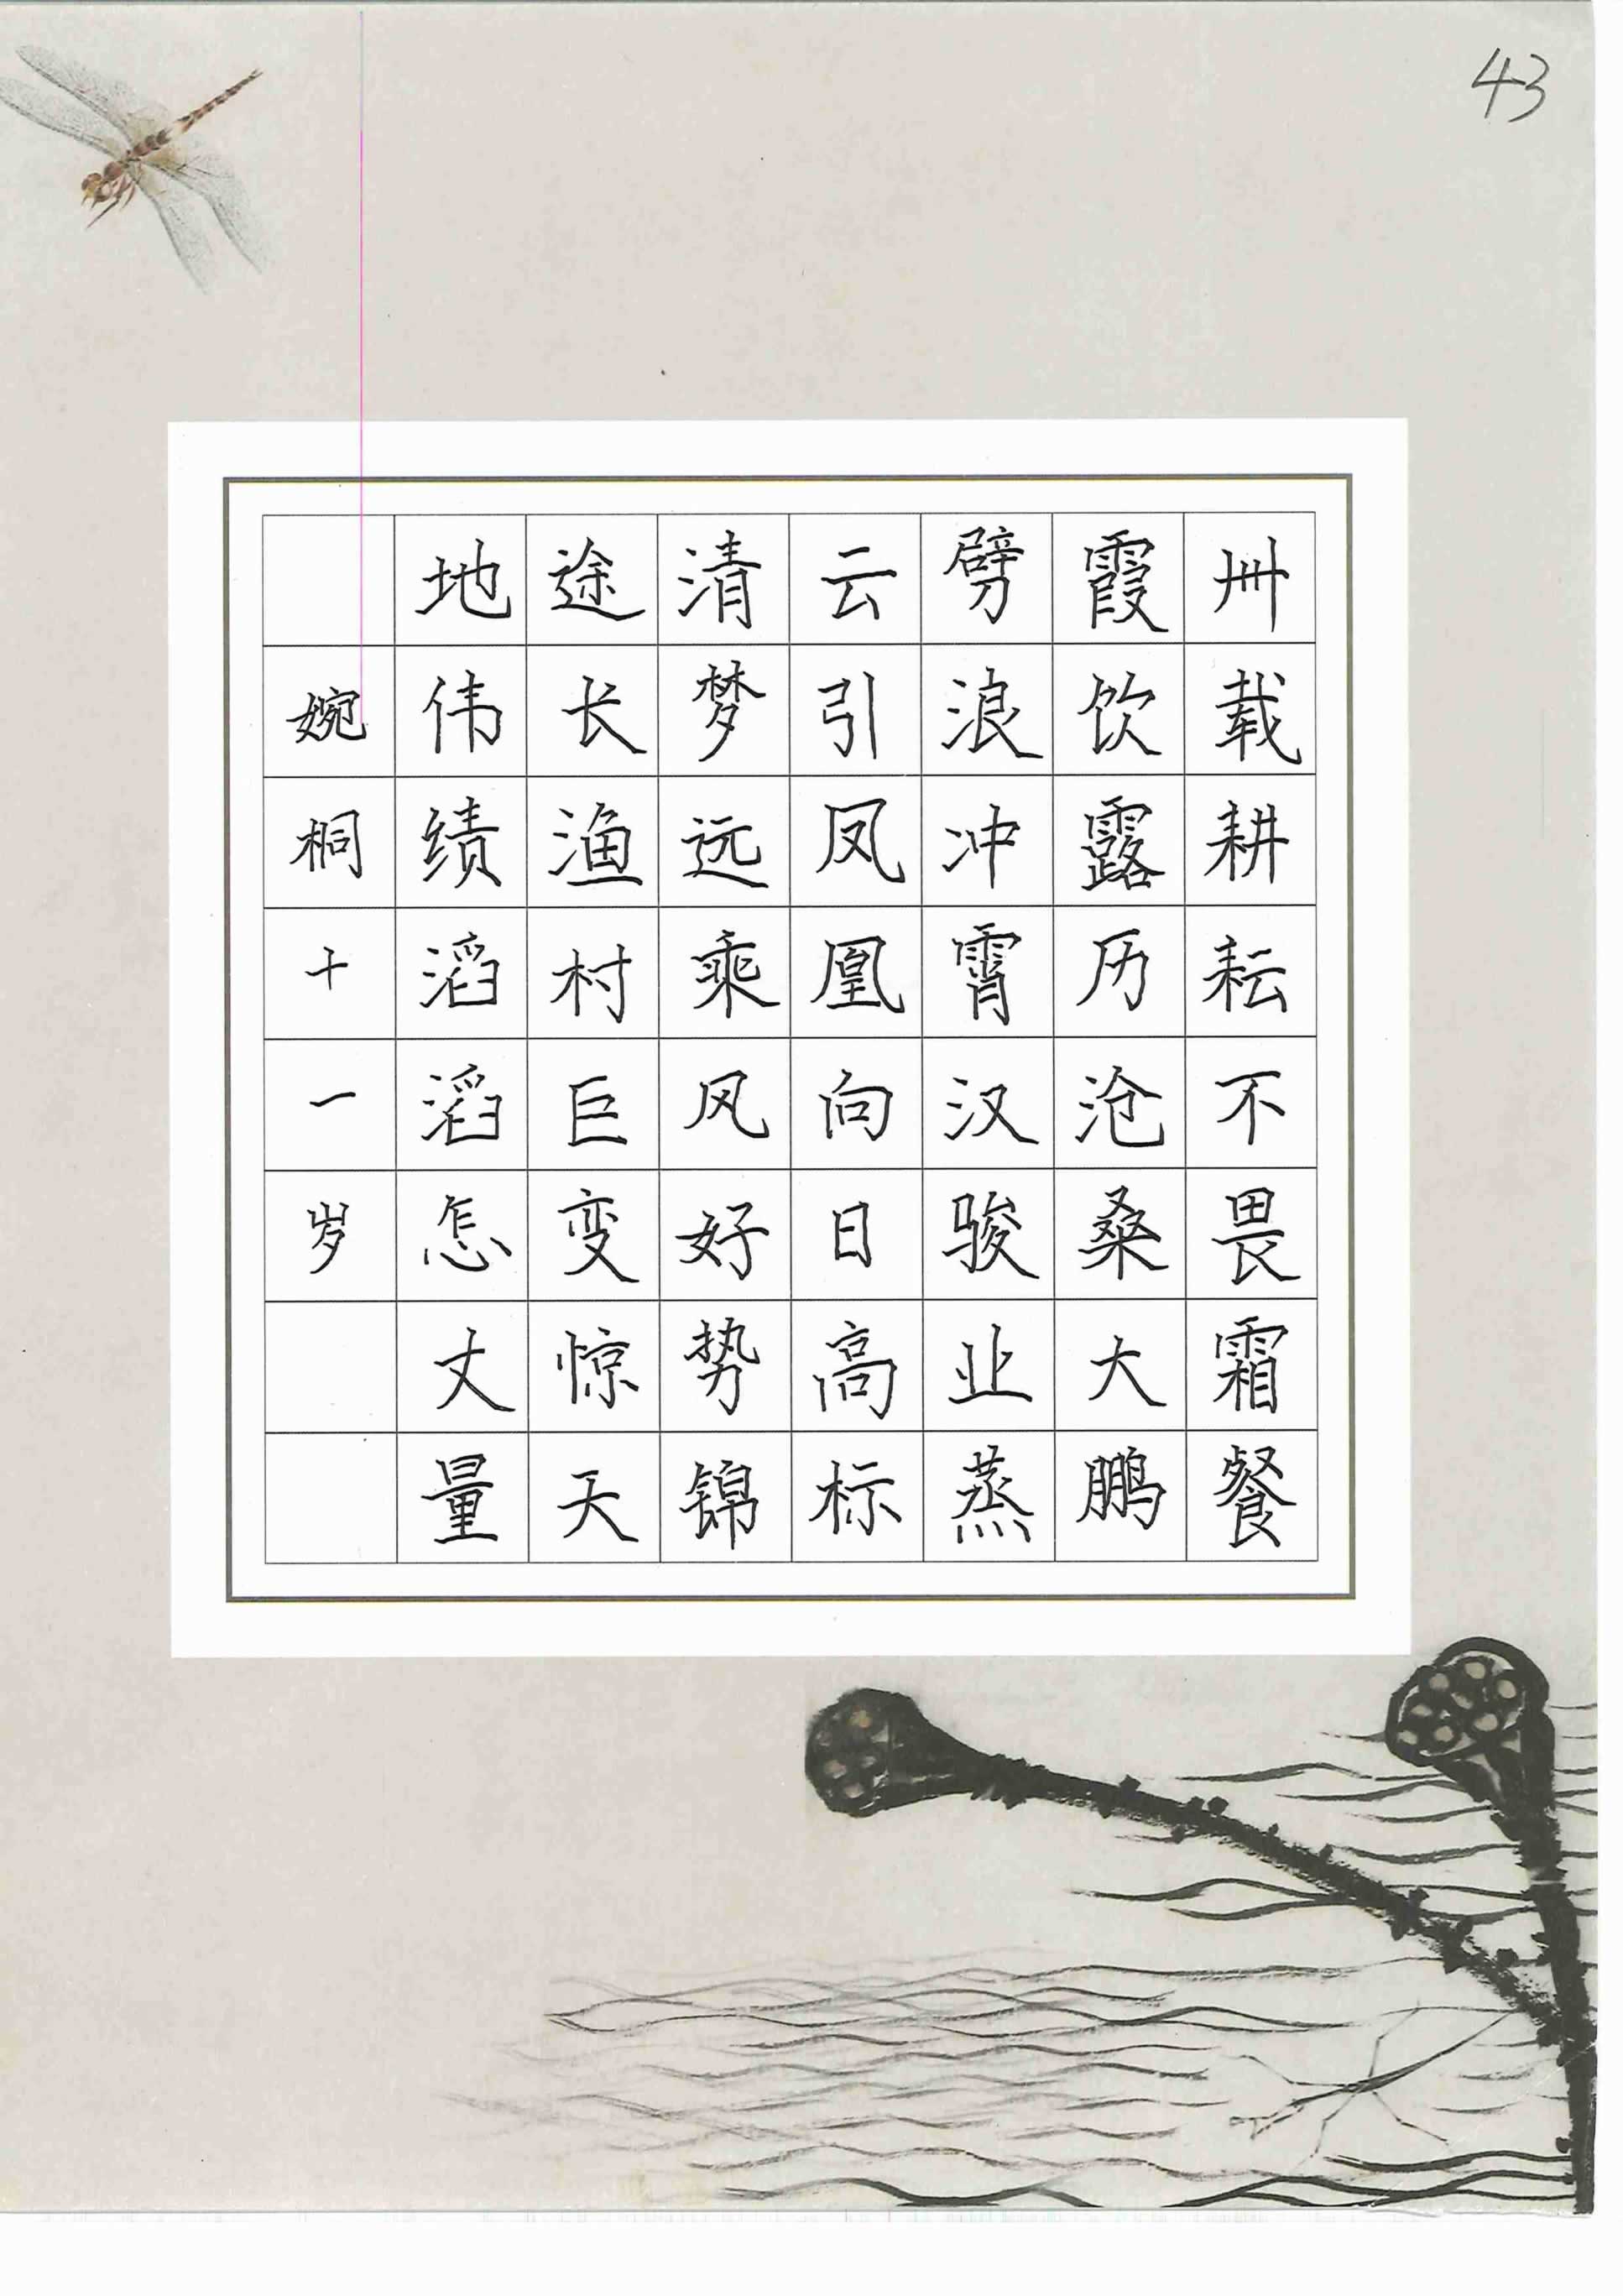 43
卅载耕耘不畏霜餐
霞饮露历沧桑大鹏
劈浪冲霄汉骏业蒸
云引凤凰向日高标
清梦远乘风好势锦
途长渔村巨变惊天
地伟绩滔滔怎丈量
婉桐十一岁